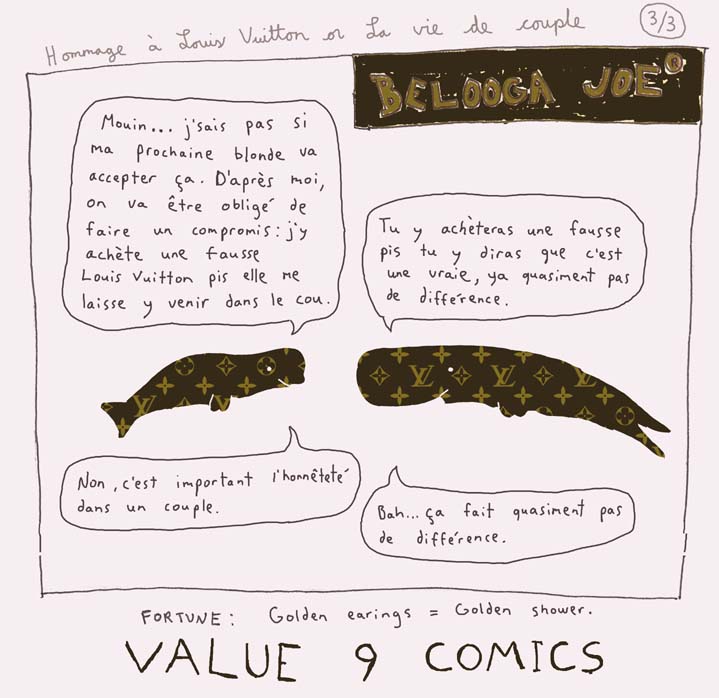 Hommage à Louis Vuitton or La vie de couple
3/3
BELOOGA JOE®
Mouin... j'sais pas si
ma prochaine blonde va
accepter ça. D'après moi,
on va être obligé de
faire un compromis: j'y
achète une fausse
Louis Vuitton pis elle me
laisse y venir dans le cou.
Tu y achèteras une fausse
pis tu y diras que c'est
une vraie, ya quasiment pas
de différence.
Non, c'est important l'honnêteté
dans un couple.
Bah... ça fait quasiment pas
de différence.
FORTUNE: Golden earings = Golden shower.
VALUE 9 COMICS